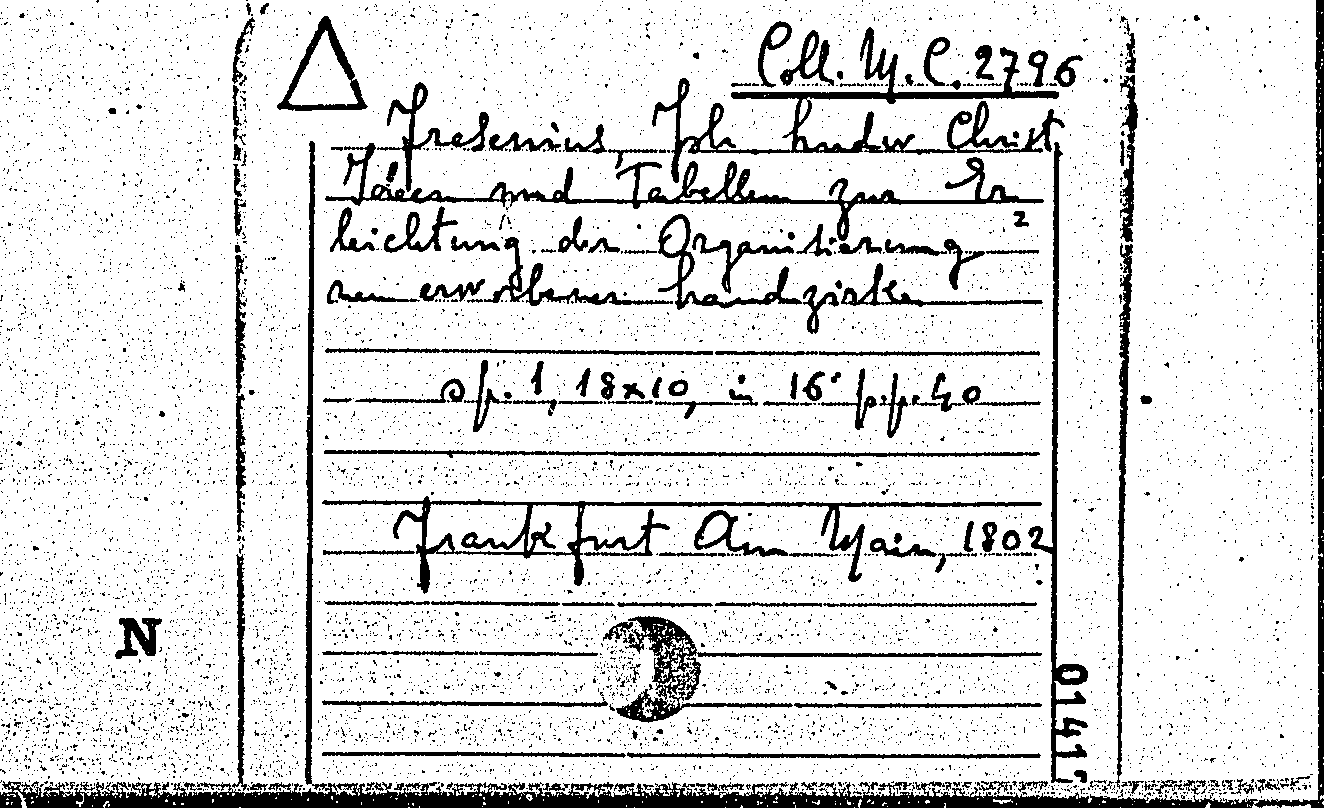 Coll. M. C. 2796
Fresenius, Joh. Christ
Ideen und Tabellen zur Er
2
leichtung der Organisierung
neu erworbener handzirke
sp. 1, 18x10, in 16° p.p. 40
Frankfurt Am Main, 1802
N
0141